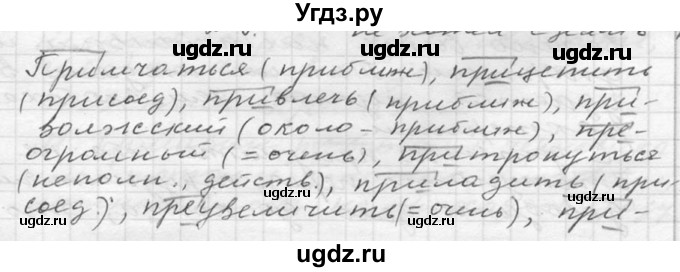 Угдз.ру
Примчаться (приближ), прицепить
(присоед), привлечь (приближ), при-
волжский (около - приближ), пре-
огромный (= очень), притронуться
(неполн., действ), приладить (при-
соед), преувеличить (= очень), при-
ugdz.ru ugdz.ru ugdz.ru